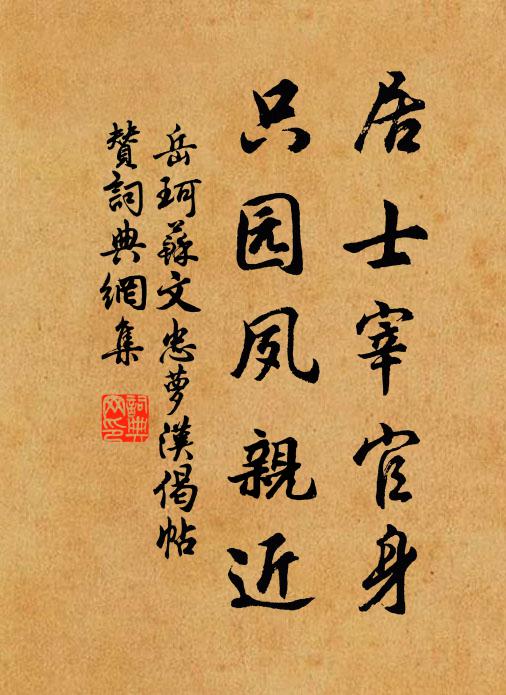 居士宰官身
只园夙親近
岳珂蘇文忠夢漢偈帖
贊詞典網集
詞典網印